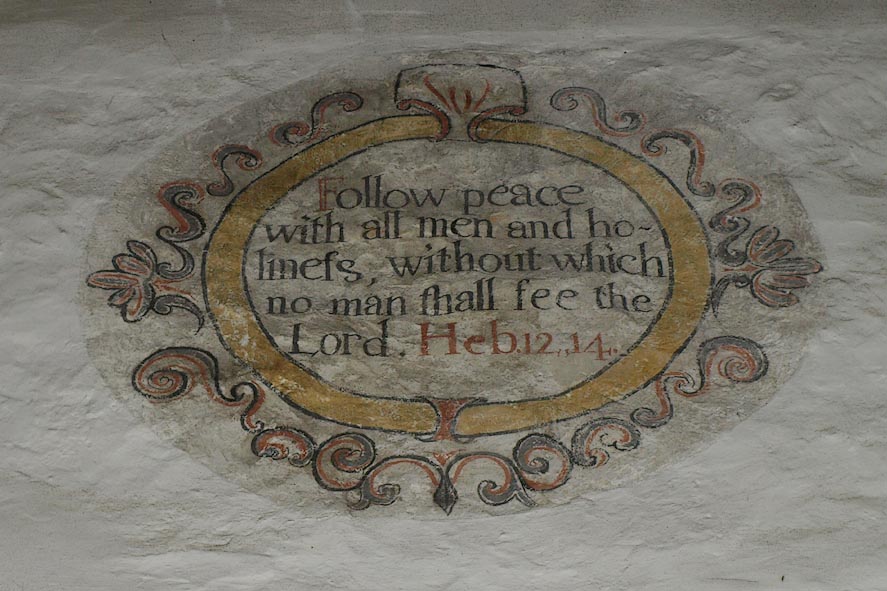 Follow peace
with all men and ho-
lineſs, without which
no man ſhall ſee the
Lord. Heb.12,,14.